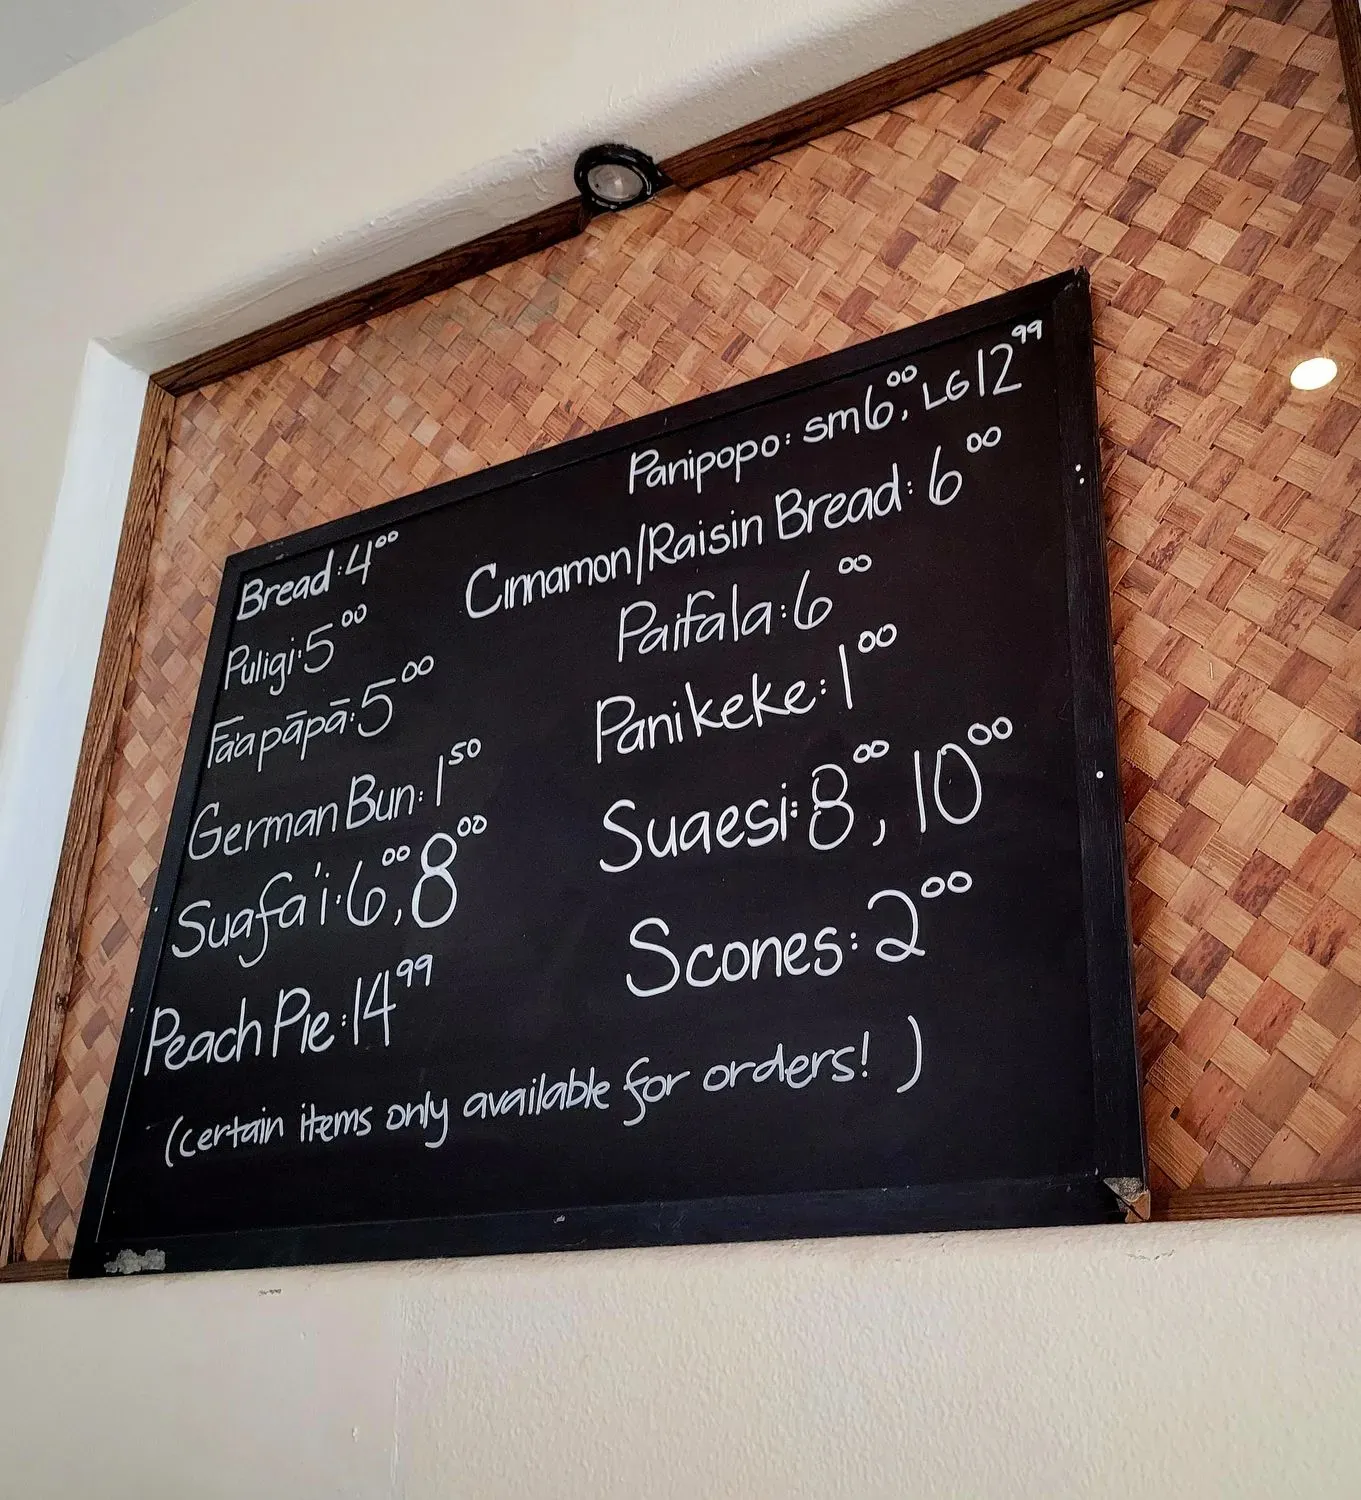 Bread: 4⁰⁰
Puligi: 5⁰⁰
Fa'apāpā: 5⁰⁰
German Bun: 1⁵⁰
Suafa'i: 6⁰⁰, 8⁰⁰
Peach Pie: 14⁹⁹
Panipopo: sm 6⁰⁰, LG 12⁹⁹
Cinnamon/Raisin Bread: 6⁰⁰
Paifala: 6⁰⁰
Panikeke: 1⁰⁰
Suaesi: 8⁰⁰, 10⁰⁰
Scones: 2⁰⁰
(certain items only available for orders! )